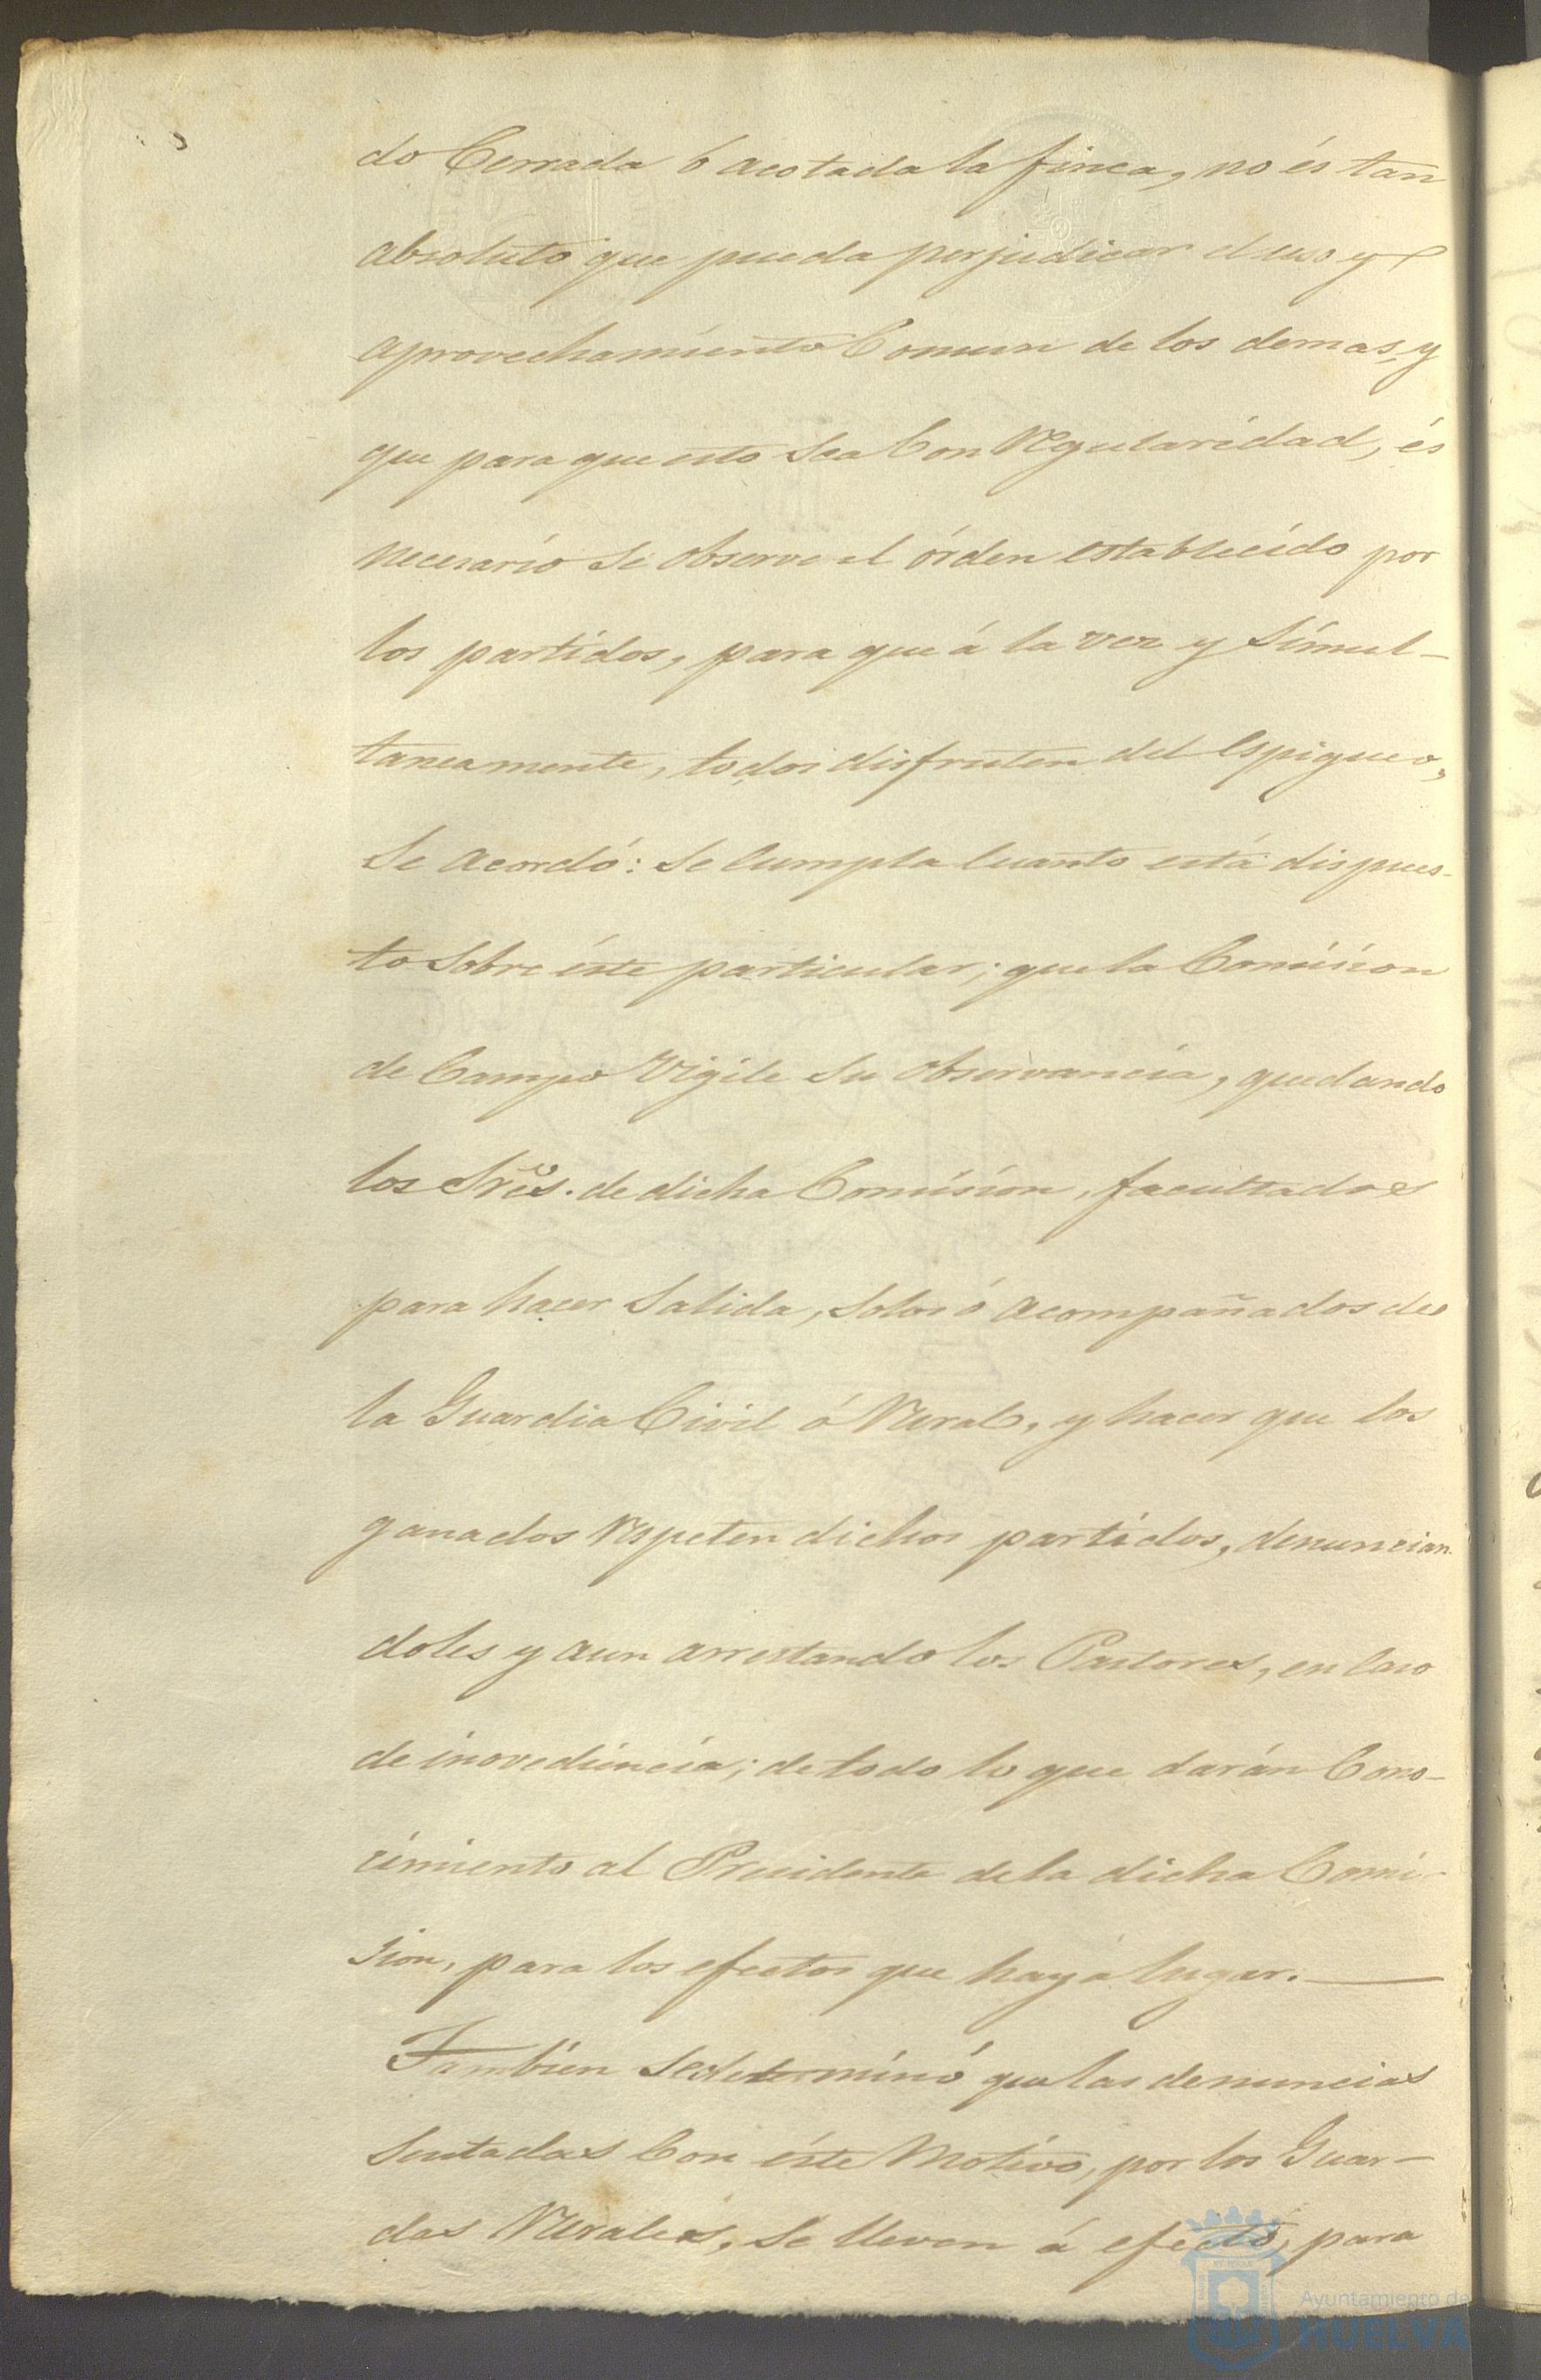 do Cerrada ó acotada la finca, no és tan
absoluto que pueda perjudicar el uso y
aprovechamiento Comun de los demas, y
que para que esto Sea Con Regularidad, és
necesario Se observe el órden establecido por
los partidos, para que á la vez y Simul-
taneamente, todos disfruten del espigueo,
Se acordó: Se Cumpla Cuanto está dispues-
to Sobre éste particular; que la Comision
de Campo Vigile Su observancia, quedando
los Sres. de dicha Comision, facultados
para hacer Salida, Solos ó acompañados de
la Guardia Civil ó Rural, y hacer que los
ganados Respeten dichos partidos, denuncian-
doles y aun arrestando los Pastores, en Caso
de inovediencia; de todo lo que darán Cono-
cimiento al Presidente de la dicha Comi-
sion, para los efectos que haya lugar.
Tambien Se determinó que las denuncias
Sentadas Con éste Motivo, por los Guar-
das Rurales, Se lleven á efecto, para
Ayuntamiento de
HUELVA